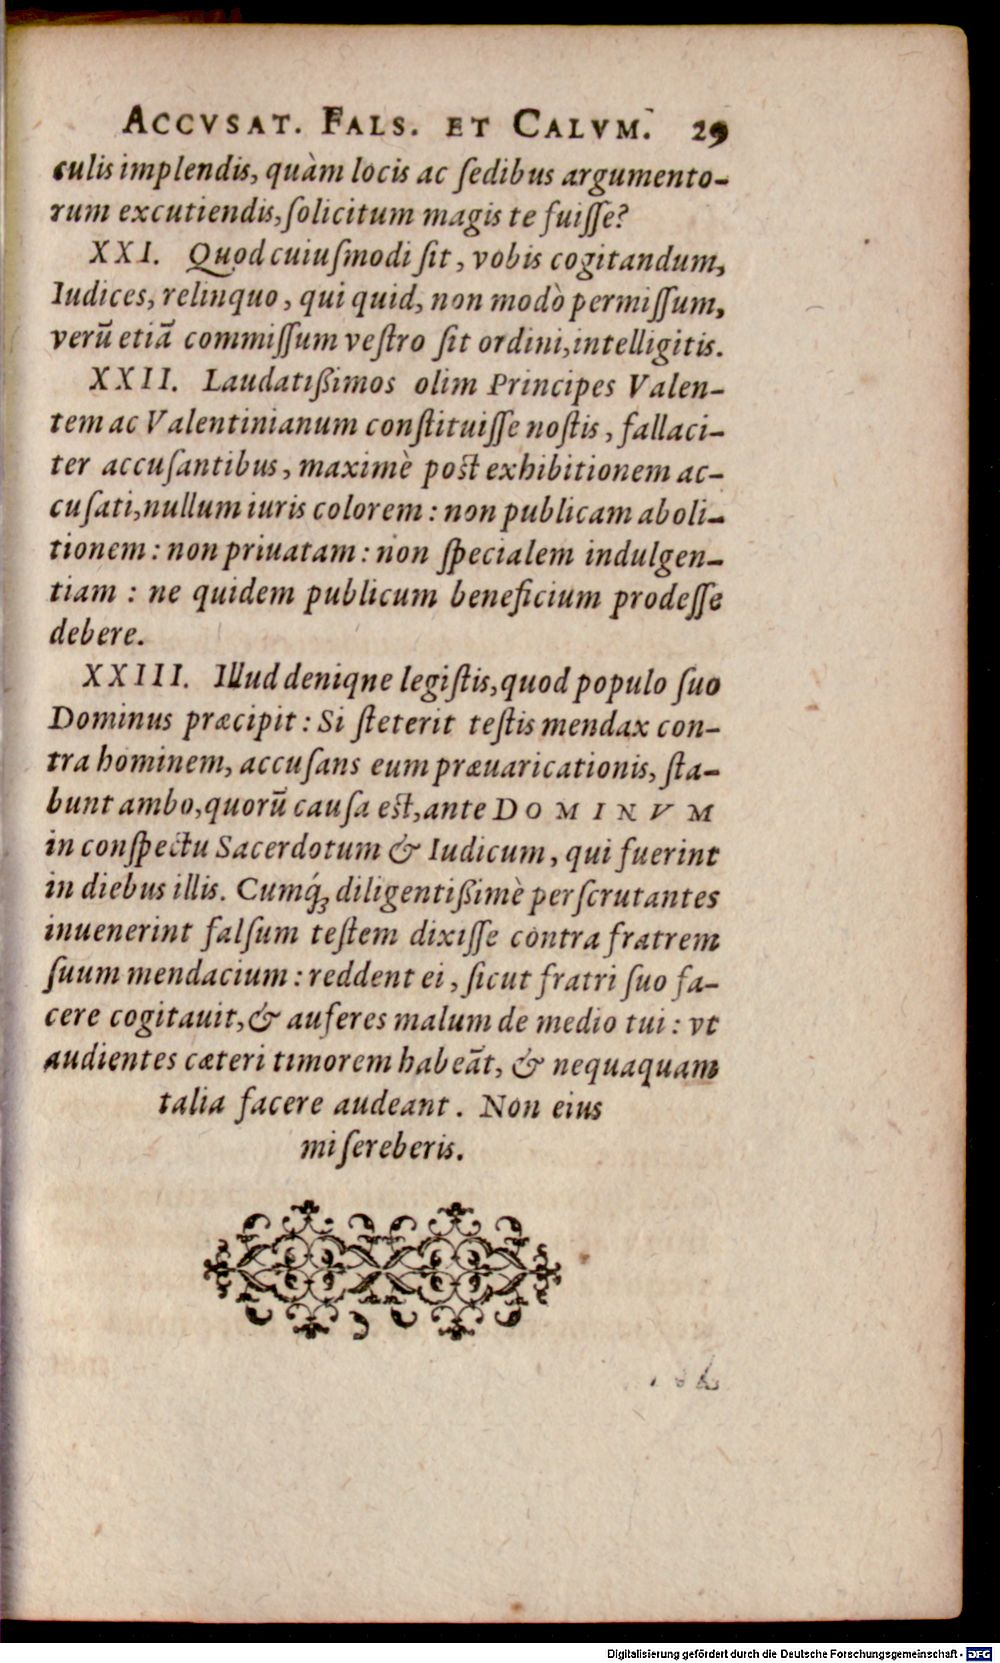 ACCVSAT. FALS. ET CALVM. 29
culis implendis, quàm locis ac ſedibus argumento-
rum excutiendis, ſolicitum magis te fuiſſe?
XXI. Quod cuiuſmodi ſit, vobis cogitandum,
Iudices, relinquo, qui quid, non modò permiſſum,
verũ etiã commiſſum veſtro ſit ordini, intelligitis.
XXII. Laudatißimos olim Principes Valen-
tem ac Valentinianum conſtituiſſe noſtis, fallaci-
ter accuſantibus, maximè poſt exhibitionem ac-
cuſati, nullum iuris colorem: non publicam aboli-
tionem: non priuatam: non ſpecialem indulgen-
tiam: ne quidem publicum beneficium prodeſſe
debere.
XXIII. Illud deniqne legiſtis, quod populo ſuo
Dominus præcipit: Si ſteterit teſtis mendax con-
tra hominem, accuſans eum præuaricationis, ſta-
bunt ambo, quorũ cauſa eſt, ante DOMINVM
in conſpectu Sacerdotum & Iudicum, qui fuerint
in diebus illis. Cumq́ꝫ diligentißimè perſcrutantes
inuenerint falſum teſtem dixiſſe contra fratrem
ſuum mendacium: reddent ei, ſicut fratri ſuo fa-
cere cogitauit, & auferes malum de medio tui: vt
audientes cæteri timorem habeãt, & nequaquam
talia facere audeant. Non eius
miſereberis.
Digitalisierung gefördert durch die Deutsche Forschungsgemeinschaft - DFG